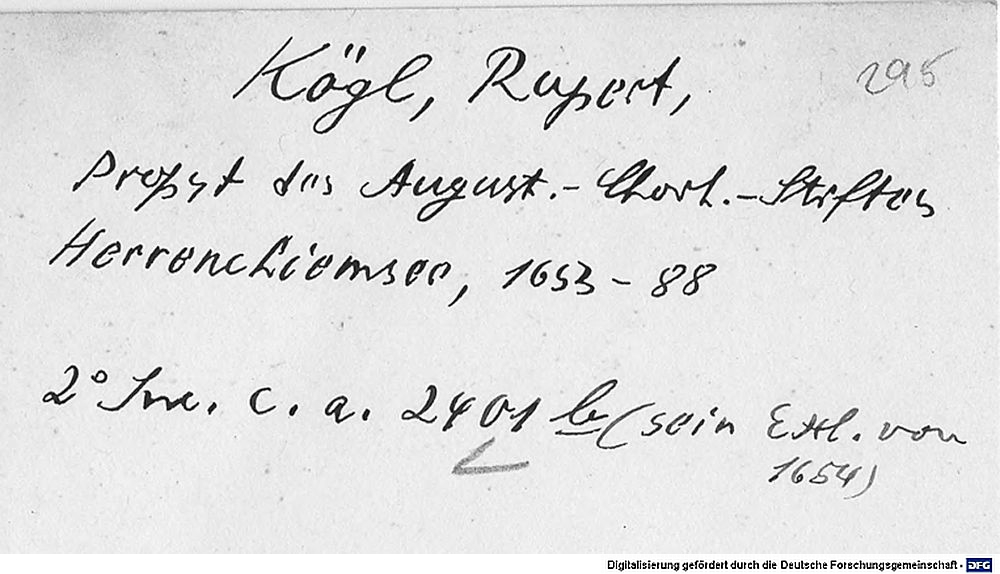 Kögl, Rupert,
295
Propst des August.-Chorh.-Stiftes
Herrenchiemsee, 1653-88
2° Inc. c. a. 2401 b (sein Exl. von
1654)
Digitalisierung gefördert durch die Deutsche Forschungsgemeinschaft - DFG